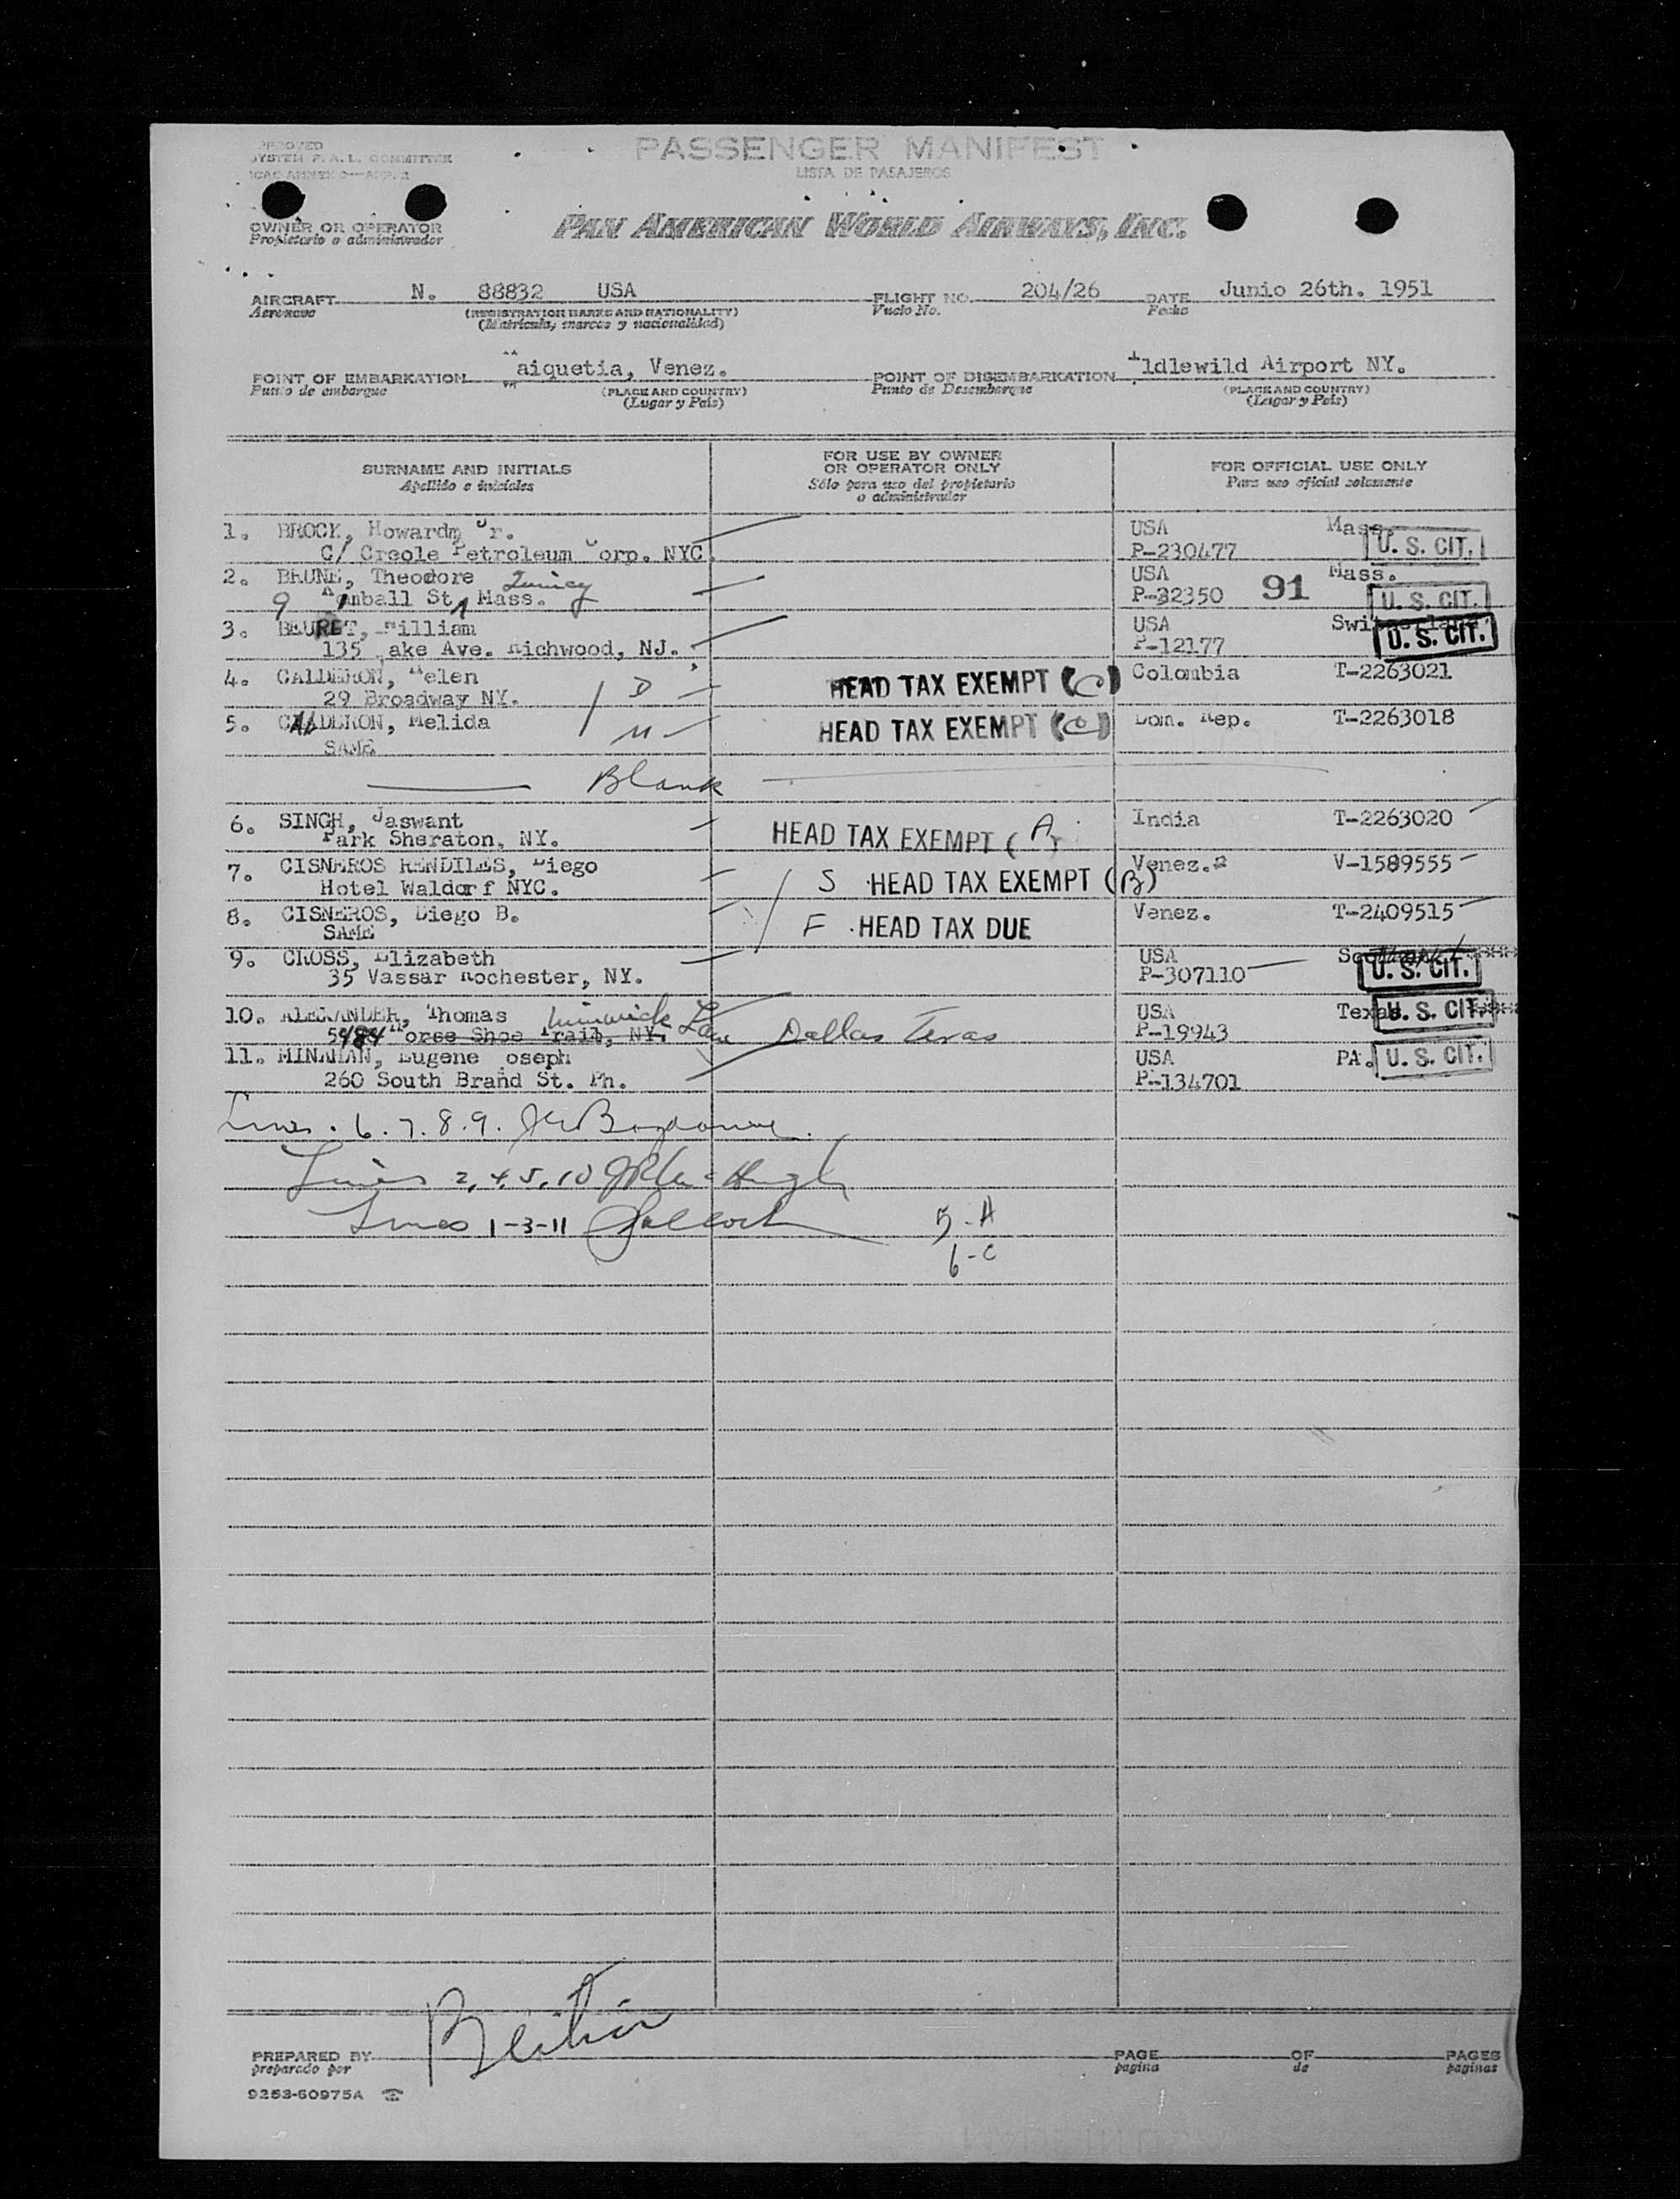 PASSENGER MANIFEST
SYSTEM F. A. L. COMMITTEE
LISTA DE PASAJEROS
OWNER OR OPERATOR
Propietario o administrador
PAN AMERICAN WORLD AIRWAYS, INC.
AIRCRAFT N. 88832 USA FLIGHT NO. 204/26 DATE Junio 26th. 1951
Aeronave (REGISTRATION MARKS AND NATIONALITY) Vuelo No. Fecha
(Matrícula, marcas y nacionalidad)
POINT OF EMBARKATION aiquetia, Venez. POINT OF DISEMBARKATION Idlewild Airport NY.
Punto de embarque (PLACE AND COUNTRY) Punto de Desembarque (PLACE AND COUNTRY)
(Lugar y País) (Lugar y País)
SURNAME AND INITIALS FOR USE BY OWNER OR OPERATOR ONLY FOR OFFICIAL USE ONLY
Apellido e iniciales Sólo para uso del propietario o administrador Para uso oficial solamente
1. BROCK, Howardm Jr. USA Mass.
C/ Creole Petroleum Corp. NYC. P-230477 U. S. CIT.
2. BRUNE, Theodore Quincy USA Mass.
9 Kimball St, Mass. P-32350 91 U. S. CIT.
3. BEURET, William USA Switzerland
135 Lake Ave. Richwood, NJ. P-12177 U. S. CIT.
4. CALDERON, Helen D HEAD TAX EXEMPT (C) Colombia T-2263021
29 Broadway NY.
5. CALDERON, Melida M HEAD TAX EXEMPT (C) Dom. Rep. T-2263018
SAME
Blank
6. SINGH, Jaswant HEAD TAX EXEMPT (A) India T-2263020
Park Sheraton, NY.
7. CISNEROS RENDILES, Diego S HEAD TAX EXEMPT (B) Venez. V-1589555
Hotel Waldorf NYC.
8. CISNEROS, Diego B. F HEAD TAX DUE Venez. T-2409515
SAME
9. CROSS, Elizabeth USA
35 Vassar Rochester, NY. P-307110 U. S. CIT.
10. ALEXANDER, Thomas USA Texas U. S. CIT.
Horse Shoe Trail, NY. Lane Dallas Texas P-19943
11. MINAHAN, Eugene Joseph USA PA. U. S. CIT.
260 South Brand St. Ph. P-134701
Lines. 6. 7. 8. 9.
Lines 2, 4, 5, 10
Lines 1-3-11
5-A
6-C
PREPARED BY PAGE OF PAGES
preparado por pagina de paginas
9253-60975A